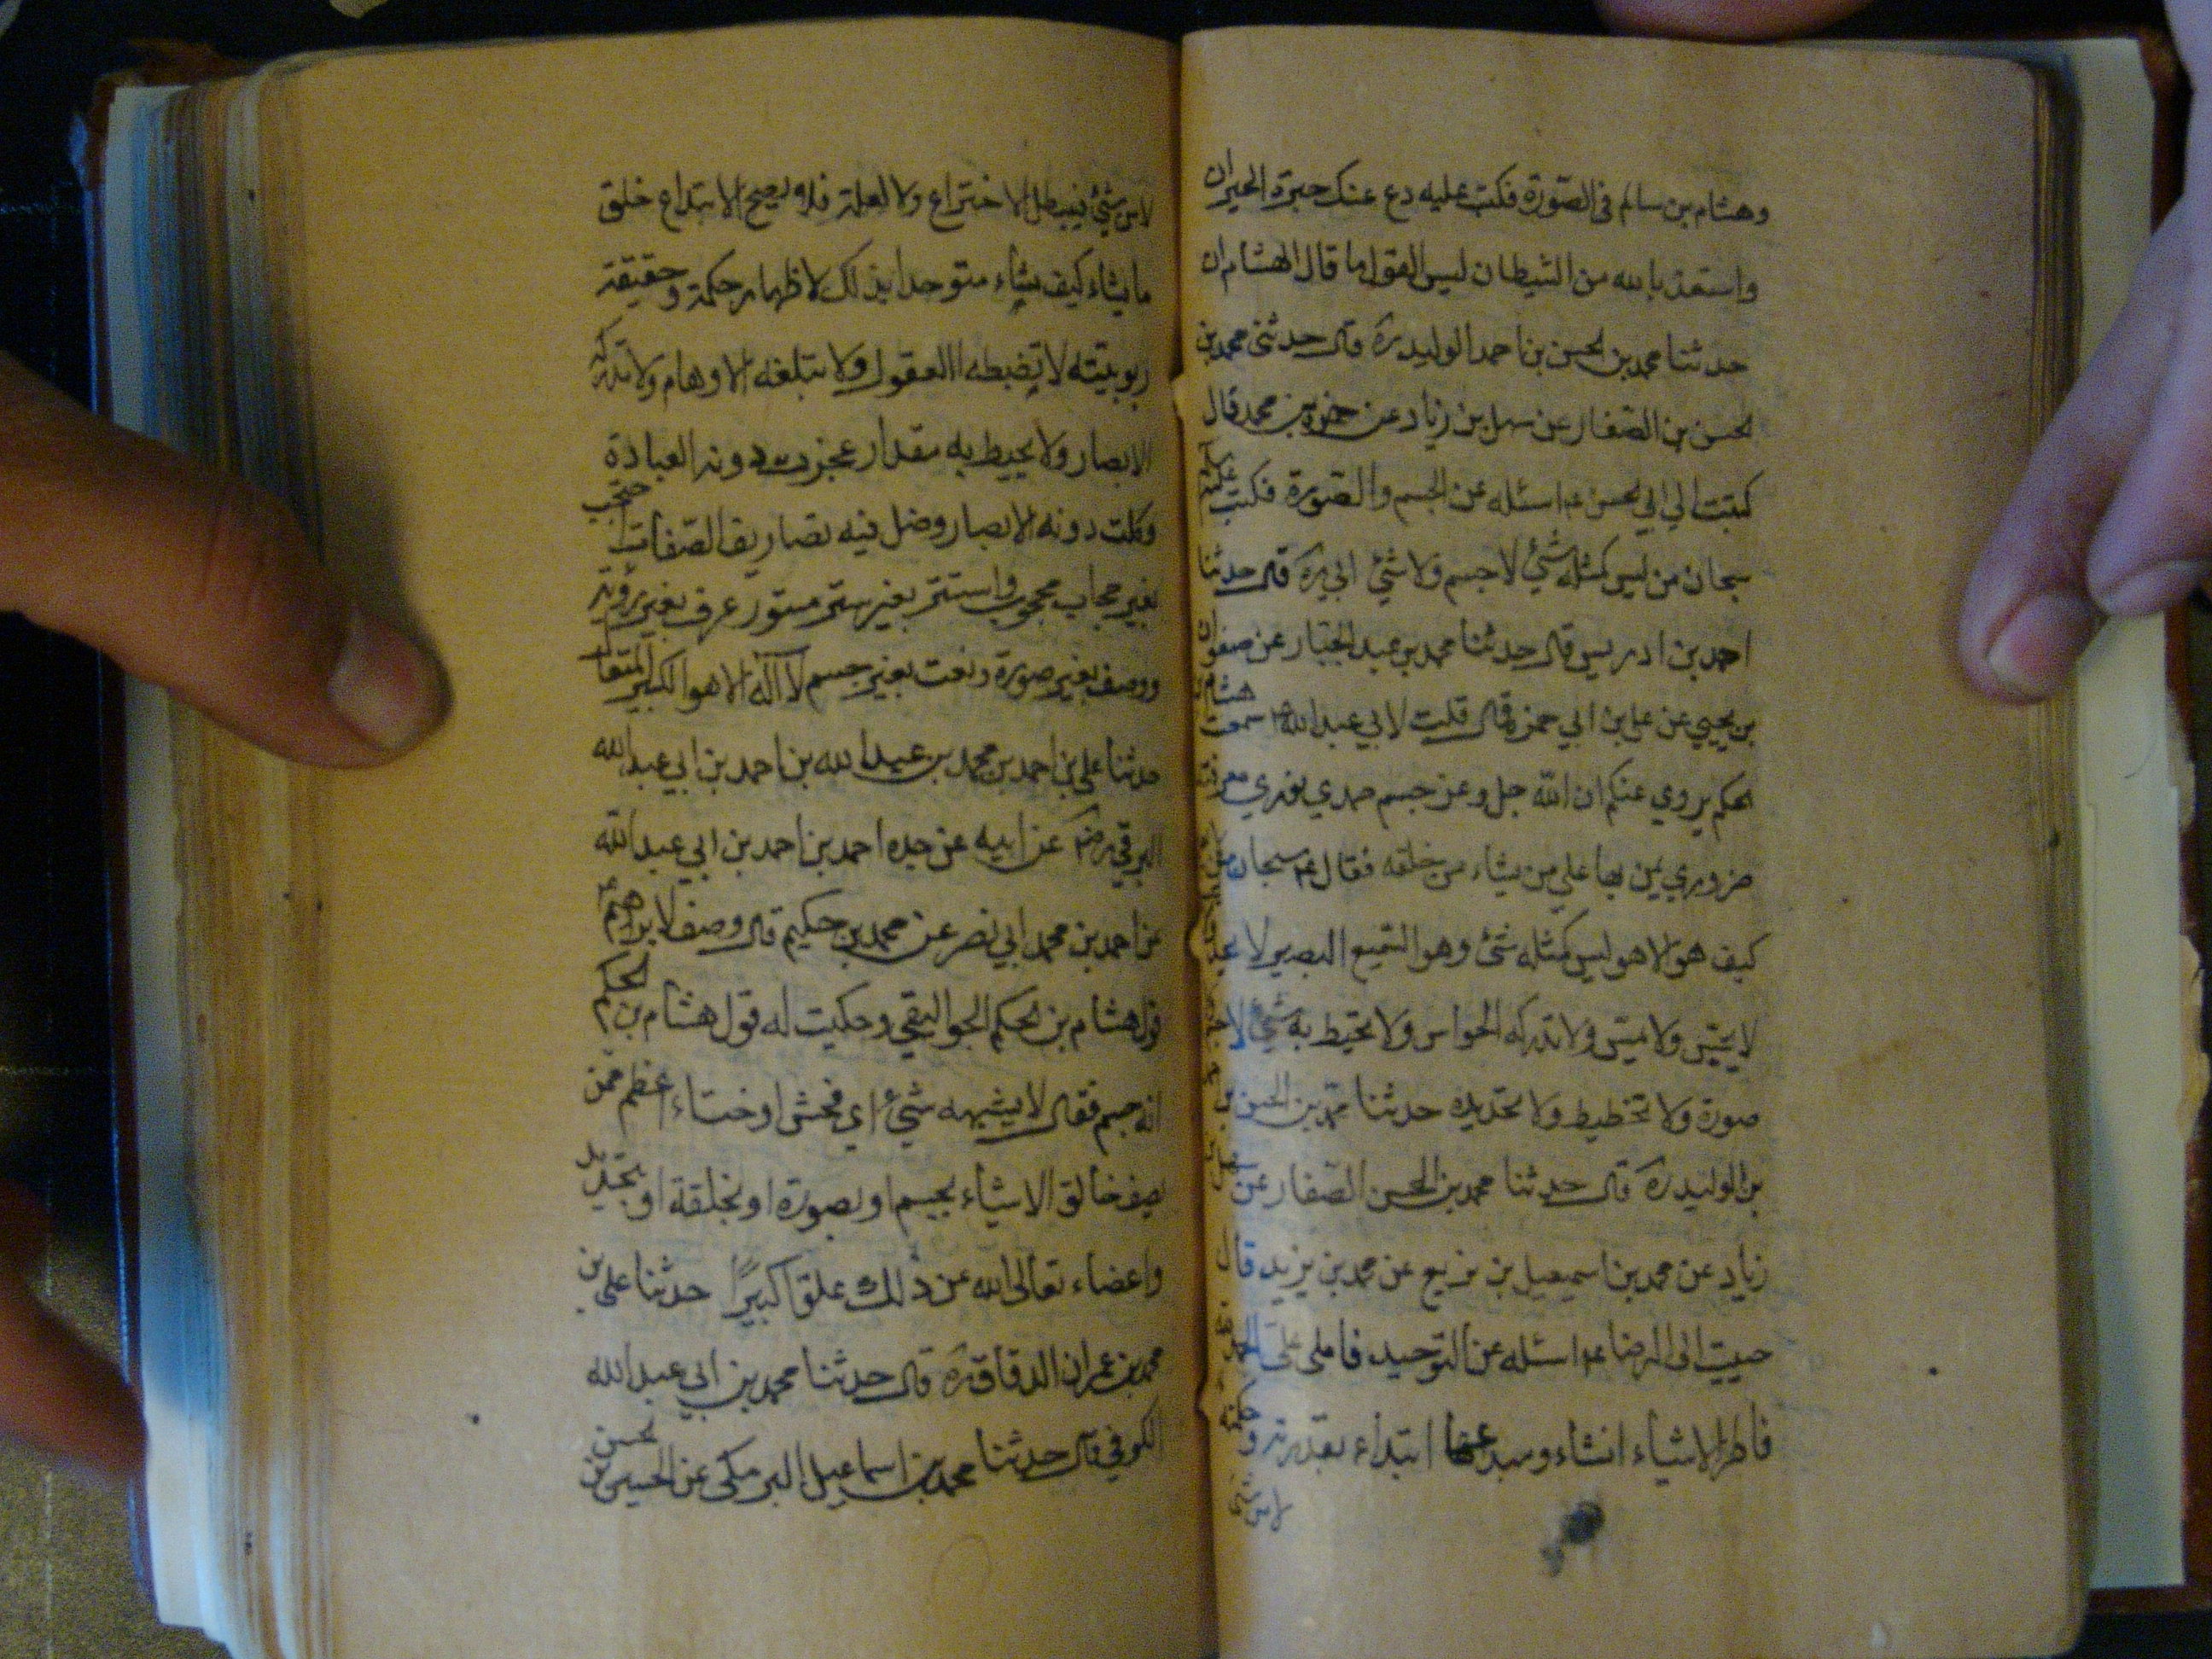 وهشام بن سالم فى الصّورة فكتب عليه دع عنك حيرة الحيران
واستعذ بالله من الشيطان ليس القول ما قال الهشام ان
حدثنا محمد بن لحسن بن احمد الوليد ره قال حدثنى محمد بن
لحسن بن الصّفار عن سهل بن زياد عن حمزة بن محمد قال
كتبت الي ابي لحسن ع اسئله عن الجسم والصّورة فكتب
سبحان من ليس كمثله شئ لا جسم ولا شئ ابي ره قال حدثنا
احمد بن ادريس قال حدثنا محمد بن عبد الجبّار عن صفوان
بن يحيي عن على بن ابي حمزة قال قلت لابي عبد الله ع سمعت هشام بن
لحكم يروي عنكم ان الله جل وعز جسم صمدي نوري معرفته
ضروري يمن بها علي من يشاء من خلقه فقال ع سبحان من
كيف هو الا هو ليس كمثله شئ وهو السّميع البصير لا
لا يحسّ ولا يمسّ ولا تدركه الحواس ولا يحيط به شئ لا
صورة ولا تخطيط ولا تحديد حدثنا محمّد بن الحسن
بن الوليد ره قال حدثنا محمد بن الحسن الصّفار عن سهل بن
زياد عن محمد بن اسمعيل بن بزيع عن محمد بن يزيد قال
جييت الى الرضا ع اسئله عن التوحيد فاملى علىّ
فاطر الاشياء انشاء ومبدعها ابتداء بقدرته و
لا من شئ
لا من شئ فيبطل الاختراع ولا لعلة فلا يصح الابتداع خلق
ما يشاء كيف يشاء متوحدا بذلك لاظهار حكمة وحقيقة
ربوبيته لا تضبطه العقول ولا تبلغه الاوهام ولا تدركه
الابصار ولا يحيط به مقدار عجزت دونه العبادة
وكلت دونه الابصار وضل فيه تصاريف الصّفات احتجب
بغير حجاب محجوب واستتر بغير ستر مستور عرف بغير رؤية
ووصف بغير صورة ونعت بغير جسم لا اله الا هو الكبير المتعال
حدثنا على بن احمد بن محمد بن عبد الله بن احمد بن ابي عبد الله
البرقي رض عن ابيه عن جده احمد بن احمد بن ابي عبد الله
عن احمد بن محمد ابي نصر عن محمد بن حكيم قال وصف لابراهيم ع
قول هشام بن لحكم الجواليقي وحكيت له قول هشام بن لحكم
انه جسم فقال لا يشبهه شئ اي فحش او خناء اعظم ممّن
يصف خالق الاشياء بجسم او بصورة او بخلقة او بتحديد
واعضاء تعالى الله عن ذلك علوّا كبيرًا حدثنا على بن
محمد بن عمران الدقاق ره قال حدثنا محمد بن ابي عبد الله
الكوفي قال حدثنا محمد بن اسماعيل البرمكى عن الحسين بن لحسن